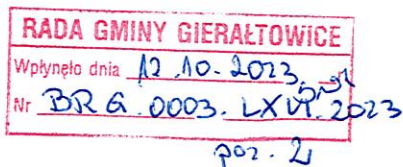 RADA GMINY GIERAŁTOWICE
Wpłynęło dnia 12.10.2023
Nr BRG.0003.LXVI.2023
poz. 2